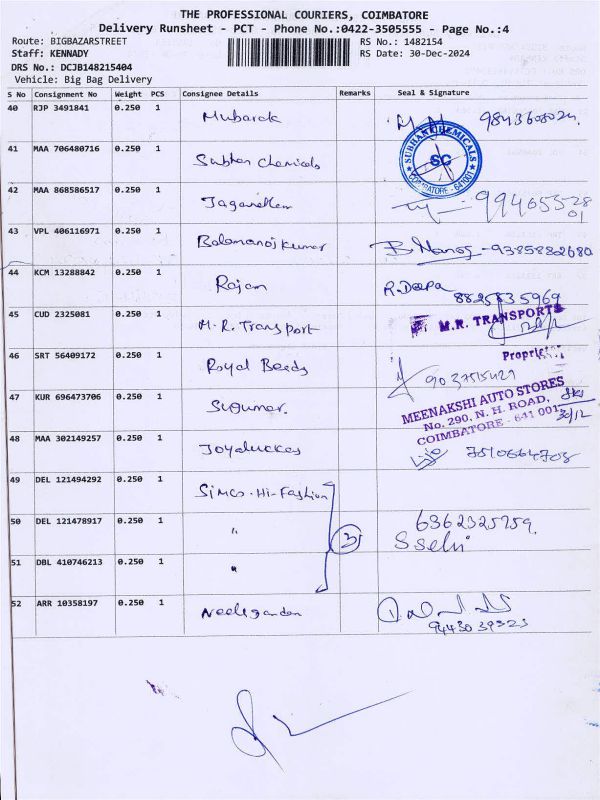 THE PROFESSIONAL COURIERS, COIMBATORE
Delivery Runsheet - PCT - Phone No.:0422-3505555 - Page No.:4
Route: BIGBAZARSTREET RS No.: 1482154
Staff: KENNADY RS Date: 30-Dec-2024
DRS No.: DCJB148215404
Vehicle: Big Bag Delivery
S No Consignment No Weight PCS Consignee Details Remarks Seal & Signature
40 RJP 3491841 0.250 1 Mubarak
41 MAA 706480716 0.250 1 Subhan Chemicals SUBHAN CHEMICALS SC COIMBATORE - 641001
42 MAA 868586517 0.250 1
43 VPL 406116971 0.250 1 Balamanoj kumar B Manoj - 9385882680
44 KCM 13288842 0.250 1 Rajam R. Deepa
8825835969
45 CUD 2325081 0.250 1 M.R. Transport M.R. TRANSPORTS
Proprietor
46 SRT 56409172 0.250 1 Royal Beeds
47 KUR 696473706 0.250 1 MEENAKSHI AUTO STORES
No. 290, N. H. ROAD,
COIMBATORE - 641 001
30/12
48 MAA 302149257 0.250 1 Joyaluckas
49 DEL 121494292 0.250 1 Simco. Hi-Fashion
50 DEL 121478917 0.250 1 " 3 6362325759
51 DBL 410746213 0.250 1 "
52 ARR 10358197 0.250 1
9443039323